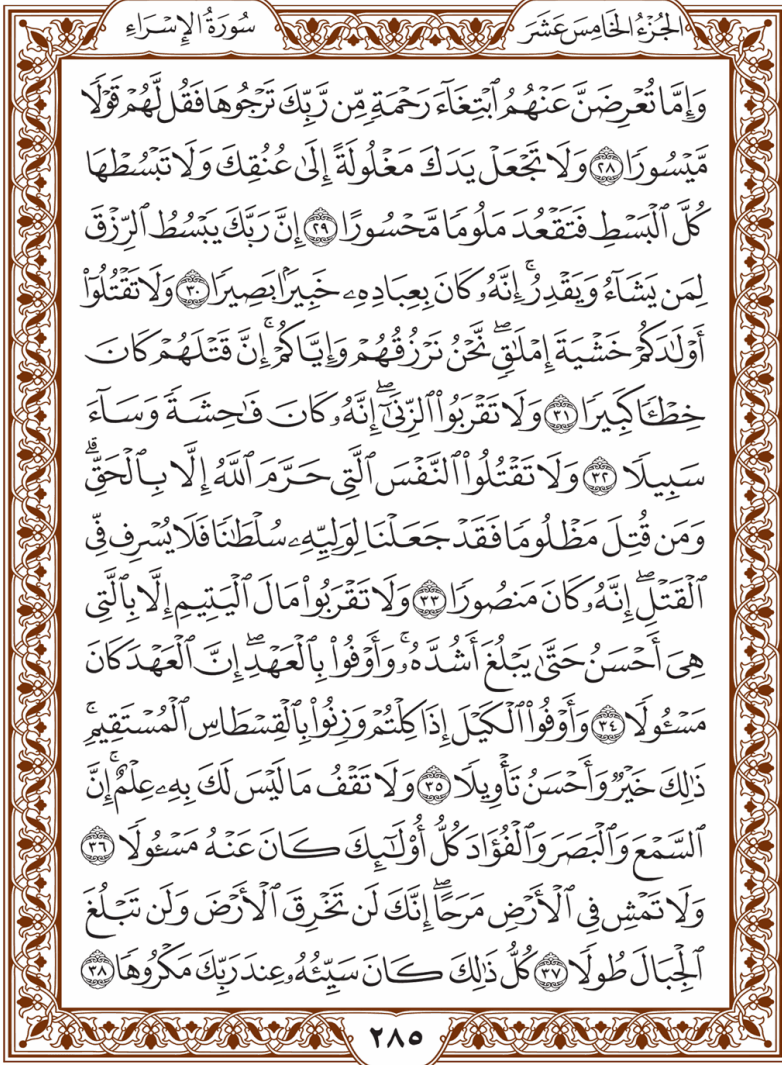 الجُزْءُ الخَامِسَ عَشَرَ
سُورَةُ الإِسْرَاءِ
وَإِمَّا تُعۡرِضَنَّ عَنۡهُمُ ٱبۡتِغَآءَ رَحۡمَةٖ مِّن رَّبِّكَ تَرۡجُوهَا فَقُل لَّهُمۡ قَوۡلٗا
مَّيۡسُورٗا ٢٨ وَلَا تَجۡعَلۡ يَدَكَ مَغۡلُولَةً إِلَىٰ عُنُقِكَ وَلَا تَبۡسُطۡهَا
كُلَّ ٱلۡبَسۡطِ فَتَقۡعُدَ مَلُومٗا مَّحۡسُورًا ٢٩ إِنَّ رَبَّكَ يَبۡسُطُ ٱلرِّزۡقَ
لِمَن يَشَآءُ وَيَقۡدِرُۚ إِنَّهُۥ كَانَ بِعِبَادِهِۦ خَبِيرَۢا بَصِيرٗا ٣٠ وَلَا تَقۡتُلُوٓاْ
أَوۡلَٰدَكُمۡ خَشۡيَةَ إِمۡلَٰقٖۖ نَّحۡنُ نَرۡزُقُهُمۡ وَإِيَّاكُمۡۚ إِنَّ قَتۡلَهُمۡ كَانَ
خِطۡـٔٗا كَبِيرٗا ٣١ وَلَا تَقۡرَبُواْ ٱلزِّنَىٰٓۖ إِنَّهُۥ كَانَ فَٰحِشَةٗ وَسَآءَ
سَبِيلٗا ٣٢ وَلَا تَقۡتُلُواْ ٱلنَّفۡسَ ٱلَّتِي حَرَّمَ ٱللَّهُ إِلَّا بِٱلۡحَقِّۗ
وَمَن قُتِلَ مَظۡلُومٗا فَقَدۡ جَعَلۡنَا لِوَلِيِّهِۦ سُلۡطَٰنٗا فَلَا يُسۡرِف فِّي
ٱلۡقَتۡلِۖ إِنَّهُۥ كَانَ مَنصُورٗا ٣٣ وَلَا تَقۡرَبُواْ مَالَ ٱلۡيَتِيمِ إِلَّا بِٱلَّتِي
هِيَ أَحۡسَنُ حَتَّىٰ يَبۡلُغَ أَشُدَّهُۥۚ وَأَوۡفُواْ بِٱلۡعَهۡدِۖ إِنَّ ٱلۡعَهۡدَ كَانَ
مَسۡـُٔولٗا ٣٤ وَأَوۡفُواْ ٱلۡكَيۡلَ إِذَا كِلۡتُمۡ وَزِنُواْ بِٱلۡقِسۡطَاسِ ٱلۡمُسۡتَقِيمِۚ
ذَٰلِكَ خَيۡرٞ وَأَحۡسَنُ تَأۡوِيلٗا ٣٥ وَلَا تَقۡفُ مَا لَيۡسَ لَكَ بِهِۦ عِلۡمٌۚ إِنَّ
ٱلسَّمۡعَ وَٱلۡبَصَرَ وَٱلۡفُؤَادَ كُلُّ أُوْلَٰٓئِكَ كَانَ عَنۡهُ مَسۡـُٔولٗا ٣٦
وَلَا تَمۡشِ فِي ٱلۡأَرۡضِ مَرَحًاۖ إِنَّكَ لَن تَخۡرِقَ ٱلۡأَرۡضَ وَلَن تَبۡلُغَ
ٱلۡجِبَالَ طُولٗا ٣٧ كُلُّ ذَٰلِكَ كَانَ سَيِّئُهُۥ عِندَ رَبِّكَ مَكۡرُوهٗا ٣٨
٢٨٥